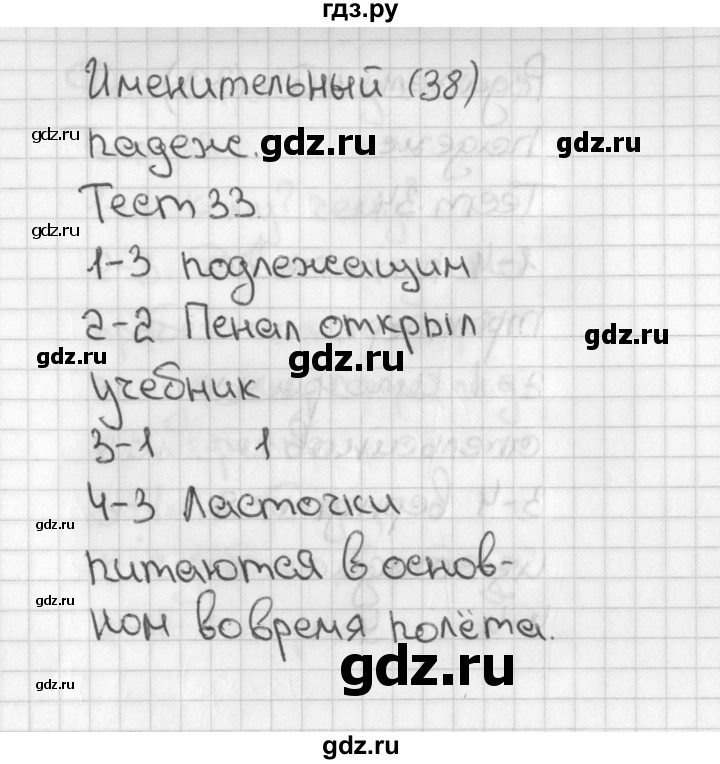 гдз.ру
Именительный (38)
gdz.ru
падеж.
gdz.ru
gdz.ru
Тест 33.
gdz.ru
1-3 подлежащим
2-2 Пенал открыл
gdz.ru
gdz.ru
gdz.ru
учебник
3-1 1
4-3 Ласточки
gdz.ru
питаются в основ-
gdz.ru
ном во время полёта.
gdz.ru
gdz.ru
gdz.ru